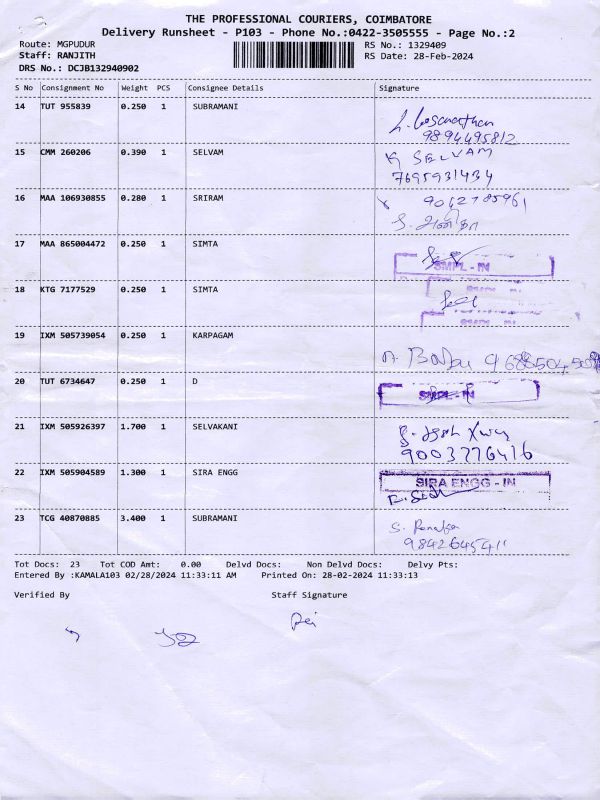 THE PROFESSIONAL COURIERS, COIMBATORE
Delivery Runsheet - P103 - Phone No.:0422-3505555 - Page No.:2
Route: MGPUDUR RS No.: 1329409
Staff: RANJITH RS Date: 28-Feb-2024
DRS No.: DCJB132940902
S No Consignment No Weight PCS Consignee Details Signature
14 TUT 955839 0.250 1 SUBRAMANI
9894495812
15 CMM 260206 0.390 1 SELVAM K SELVAM
7695931434
16 MAA 106930855 0.280 1 SRIRAM
17 MAA 865004472 0.250 1 SIMTA
SMPL - IN
18 KTG 7177529 0.250 1 SIMTA
SMPL - IN
19 IXM 505739054 0.250 1 KARPAGAM
20 TUT 6734647 0.250 1 D
SMPL - IN
21 IXM 505926397 1.700 1 SELVAKANI
9003776416
22 IXM 505904589 1.300 1 SIRA ENGG SIRA ENGG - IN
23 TCG 40870885 3.400 1 SUBRAMANI
Tot Docs: 23 Tot COD Amt: 0.00 Delvd Docs: Non Delvd Docs: Delvy Pts:
Entered By :KAMALA103 02/28/2024 11:33:11 AM Printed On: 28-02-2024 11:33:13
Verified By Staff Signature